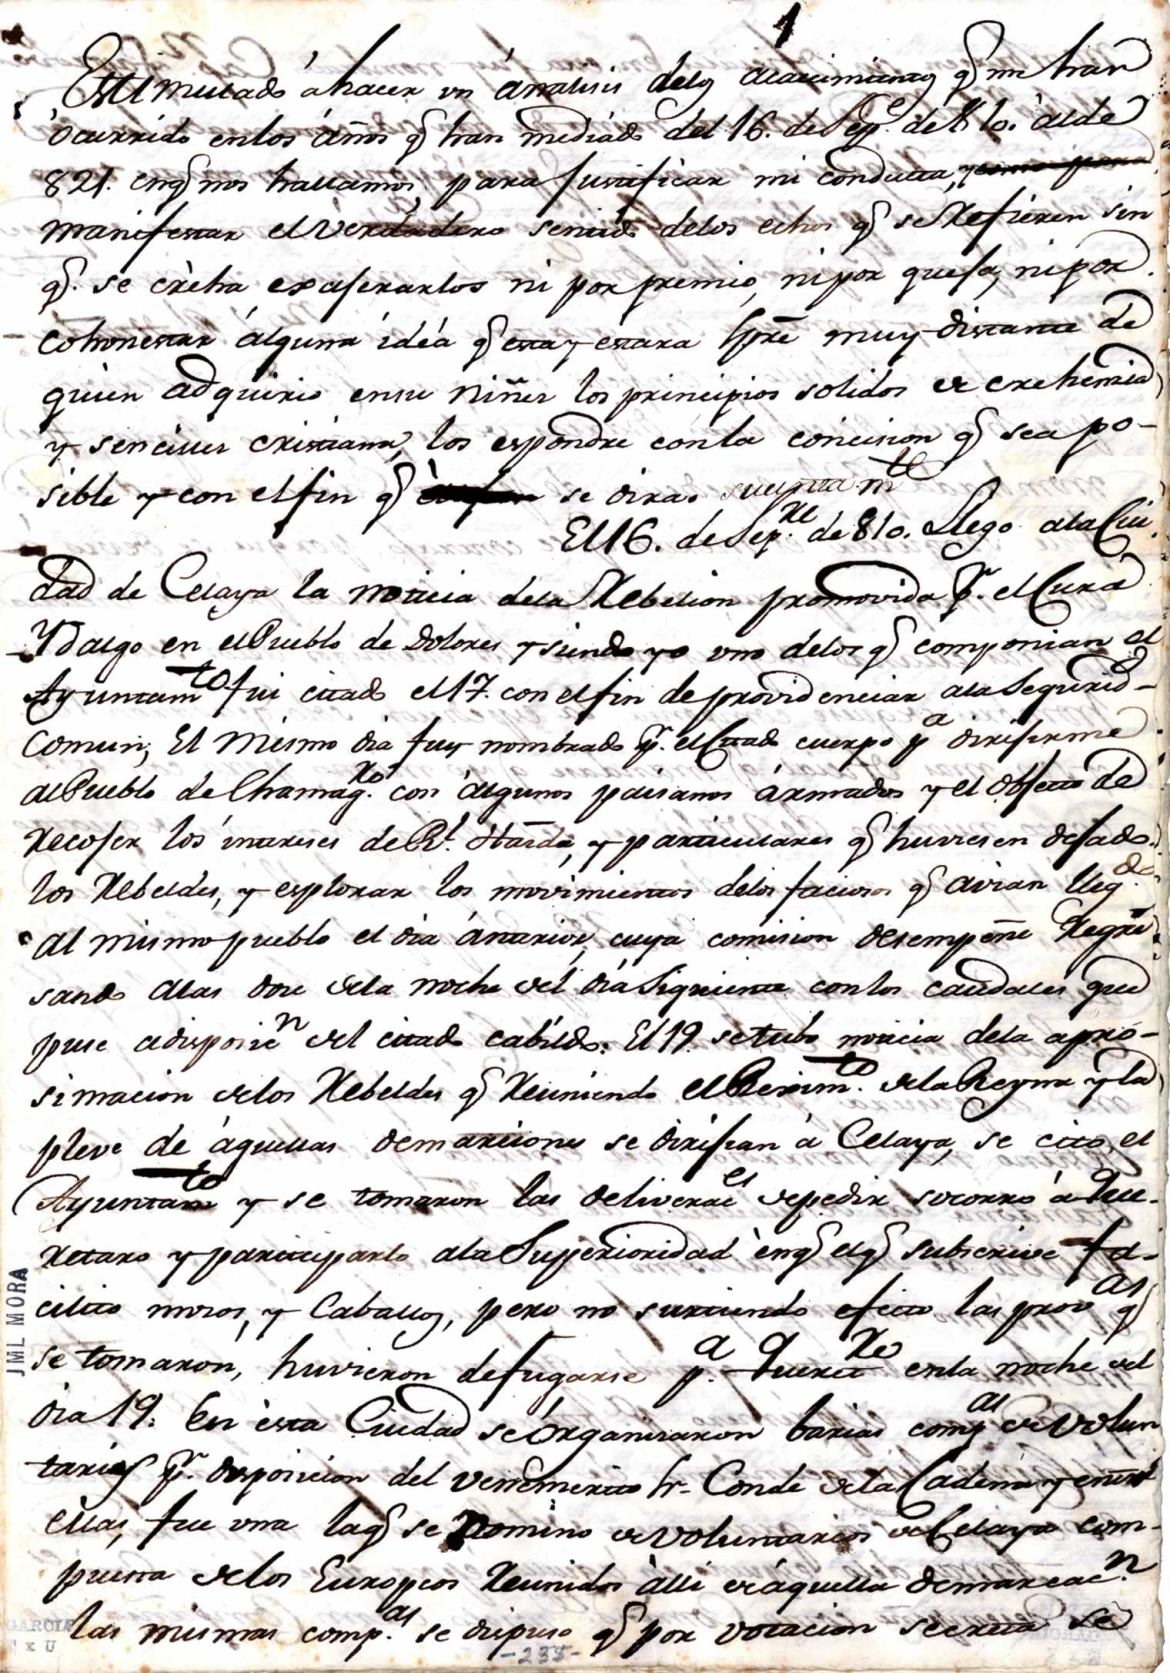 1
Estimulado á hacer un ánalisis delos acaecimientos q.e me han
ocurrido enlos años q.e han mediado del 16. de Sep.e de 810. al de
821. enq.e nos hallamos, para justificar mi conducta, y como para
manifestar el verdadero sentido delos echos q.e se Refieren sin
q.e se créha exajerarlos ni por premio, ni por quefa, ni por
cohonestar alguna idéa q.e esta y estara spre muy distante de
quien adquirio ensu Niñes los principios solidos de crehencia
y sencives cristiana, los espondre conla concision q.e sea po-
sible y con el fin q.e se dira
El 16. de Sep.re de 810. Llego ala Ciu
dad de Celaya la noticia dela Rebelion promovida p.r el Cura
Ydalgo en el Pueblo de Dolores y siendo yo uno delos q.e componian el
Ayuntam.to fui citado el 17. con el fin de providenciar ala Segurid-
Comun, El mismo dia fuy nombrado p.r el Citado cuerpo p.a dirijirme
al Pueblo de Chamaq.ro con álgunos paisanos ármados y el objeto de
Recojer los intereses de R.l Haz.da, y particulares q.e huviesen dejado
los Rebeldes, y esplorar los movimientos delos faciosos q.e avian lleg.do
al mismo pueblo el dia ánterior, cuya comision desempeñe Regre
sando alas doce dela noche del dia Siguiente conlos caudales que
puse adisposic.n del citado cabildo. El 19. se tubo noticia dela apro-
simacion delos Rebeldes q.e Reuniendo el Rexim.to dela Reyna y la
pleve de áquellas demarciones se dirijian á Celaya, se cito el
Ayuntam.to y se tomaron las deliverac.es depedir socorro á Que-
retaro y participarlo ala Superioridad enq.e elq.e subscrive fa-
cilito mosos, y Caballos, pero no surtiendo efecto las prov.as q.e
se tomaron, huvieron defugarse p.a Queret.ro enla noche del
dia 19. En ésta Ciudad se Organisaron barias comp.as de Volun
tarios p.r disposicion del venemerito Sr. Conde dela Cadena y entre
ellas, fue una laq.e se Nomino de Voluntarios de Celaya com-
puesta delos Europeos Reunidos álli de áquella demarcac.n
las mismas comp.as se dispuso q.e por votacion secreta se
-235-
JML MORA
GARCIA